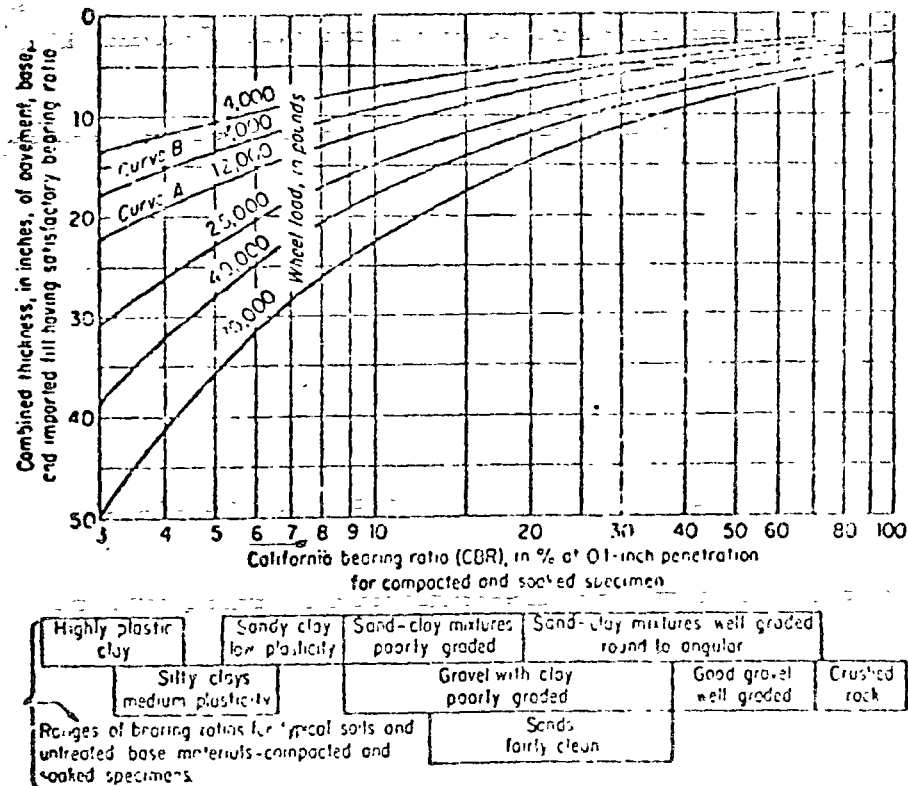 Combined thickness, in inches, of pavement, base,
and imported fill having satisfactory bearing ratio
0
10
20
30
40
50
4,000
Curve B
12,000
Curve A
25,000
40,000
70,000
Wheel load, in pounds
3 4 5 6 7 8 9 10 20 30 40 50 60 80 100
California bearing ratio (CBR), in % at 0.1-inch penetration
for compacted and soaked specimen
Highly plastic
clay
Sandy clay
low plasticity
Sand-clay mixtures
poorly graded
Sand-clay mixtures well graded
round to angular
Silty clays
medium plasticity
Gravel with clay
poorly graded
Good gravel
well graded
Crushed
rock
Sands
fairly clean
Ranges of bearing ratios for typical soils and
untreated base materials-compacted and
soaked specimens.